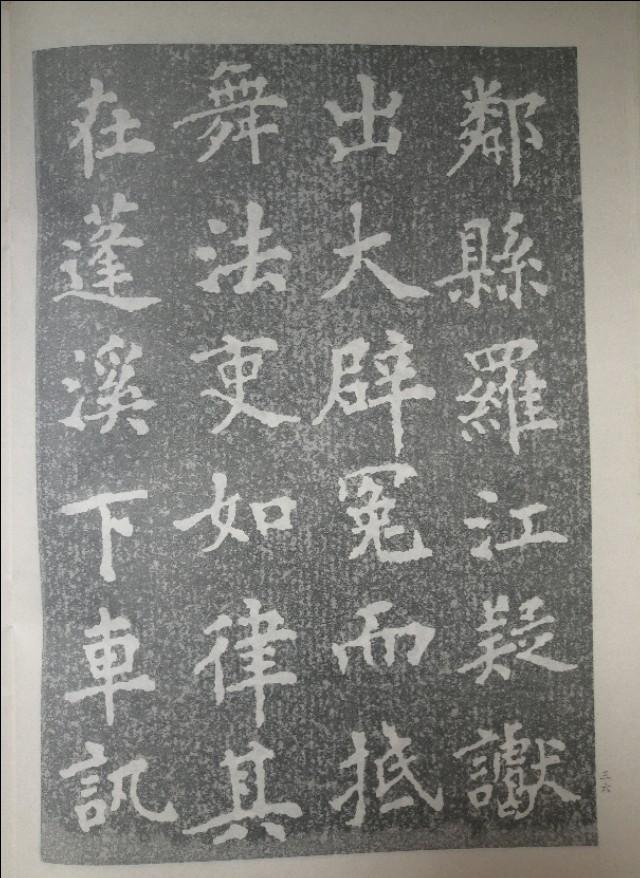 鄰縣羅江疑讞
出大辟冤而抵
舞法吏如律其
在蓬溪下車訊
三六